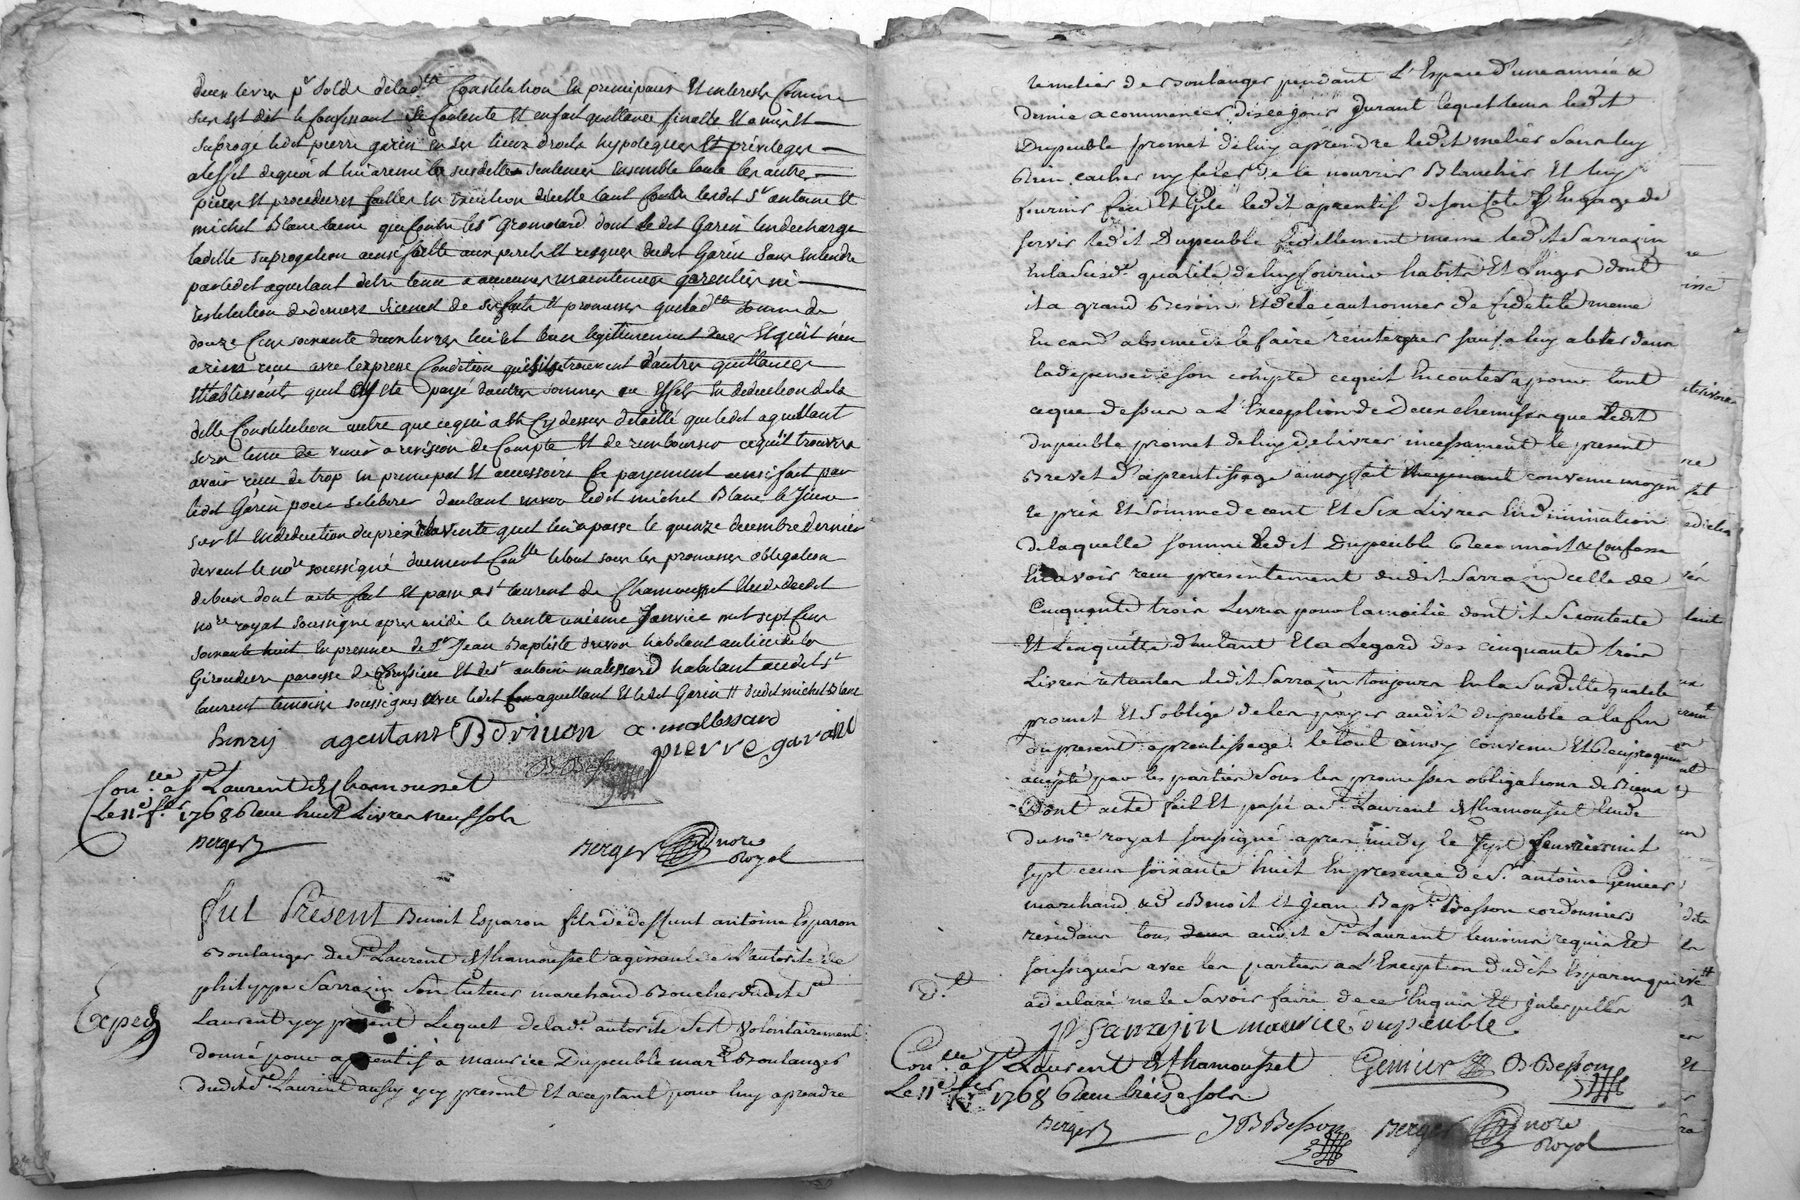 deux livres pr solde de lad.te Constitution En principaux Et interests Comme
sus Est dit le confessant se Contente Et en fait quittance finalle Et a mis Et
subrogé ledit pierre garin en ses lieux droits hypoteques Et privileges
a l'effet de quoi il lui a remis les susdittes sentences Ensemble toute les autre
pieces Et procedures faittes En Execution d'icelle tant Contre lesdit Sr antoine Et
michel Blanc laine que Contre les Gromolard dont ledit Garin len decharge
ladille subrogation ainsi faitte aux perils Et risques dudit Garin sans Entendre
par ledit aquitant detre tenu a aucunes maintenues garenties ni
restitution de deniers sicenest de ses faits Et promesses que lad.te somme de
douze Cens soixante deux livres lui Et bien legitimement deues Et qu'il n'en
a rien receu avec lexpresse Condition que s'il se trouvent d'autres quittances
Etablissants quil ait Eté payé d'autres sommes ou Effets En deduction de la
ditte Constitution autre que ce qui a Eté Cy dessus detaillé que ledit aquittant
sera tenu de venir à revision de Compte Et de rembourser ce qu'il trouvera
avoir receu de trop En principal Et accessoire Ce payement ainsi fait par
ledit Garin pour se liberer d'autant envers ledit michel Blanc le Jeune
sur Et En deduction du prix de la vente quil lui a passé le quinze decembre dernier
devant le nore soussigné duement Conllé le tout sous les promesses obligation
de bien dont acte fait Et passé a St laurent de Chamousset Etude dudit
nore royal soussigné apres midi le trente unième Janvier mil sept Cens
soixante huit En presence de Sr Jean Baptiste drivon habitant au lieu de la
Giroudiere paroisse de Brussieu Et de Sr antoine malessard habitant audit St
laurent temoins soussignes avec ledit aquittant Et ledit Garin dudit michel Blanc
henrÿ aquitant B Drivon a. mallessard
pierre garin
B Besson
Con.lle a St Laurent de Chamousset
Le 11e fer 1768 Receu huit Livres neuf sols
Berger
Berger nore Royal
Fut Présent Benoit Esparon fils de deffunt antoine Esparon
Boulanger de St Laurent de Chamousset agissant de l'autorité de
philippe Sarrazin Son tuteur marchand Boucher dudit St
Laurent icy present Lequel de lad.e autorité s'est volontairement
Exped.
donné pour aprentif à maurice Dupeuble mard Boulanger
dudit St Laurent aussy icy present Et acceptant pour luy aprendre
le metier de Boulanger pendant L'Espace d'une année &
demie a commencer dicejour durant lequel tems ledit
Dupeuble promet de luy aprendre ledit metier Sans luy
Rien cacher ny celer de le nourrir Blanchir Et luy
fournir feu Et Gite ledit aprentif de son coté s'Engage de
servir ledit Dupeuble fidellement meme ledit Sarrazin
En la Susd.e qualité de luy fournir habits Et Linges dont
il a grand Besoin Et de le cautionner de fidelité meme
En cas d'absence de le faire reintegrer
la depense a son compte
ce que dessus a L'Exception de Deux chemises que ledit
dupeuble promet de luy delivrer incessament le present
Brevet d'aprentissage ainsy fait convenu moyen
le prix Et Somme de cent Et Six Livres En diminution
de laquelle somme ledit Dupeuble Reconnoit & Confesse
En avoir receu presentement dudit Sarrazin celle de
Cinquante trois Livres pour la moitié dont il se contente
Et L'enquitte d'autant Et a L'egard des cinquante trois
Livres restantes ledit Sarrazin toujours En la Susditte qualité
promet Et s'oblige de les payer audit dupeuble a la fin
du present aprentissage le tout ainsy convenu Et Reciproquemt
accepté par les parties Sous les promesses obligations de Biens
Dont acte fait Et passé a St Laurent de Chamousset Etude
du nore royal soussigné apres midy le sept fevrier mil
sept cens soixante huit En presence de Sr antoine Genier
marchand & de Benoit Et jean Bapte Besson cordonniers
residans tous audit St Laurent temoins requis Et
soussignés avec les parties a L'Exception dudit Esparon qui
a declaré ne le Savoir faire de ce Enquis Et Interpellé
JP Sarrazin maurice dupeuble
Con.lle a St Laurent de Chamousset Genier B Besson
Le 11e fer 1768 Receu treize sols
Berger JB Besson Berger nore Royal